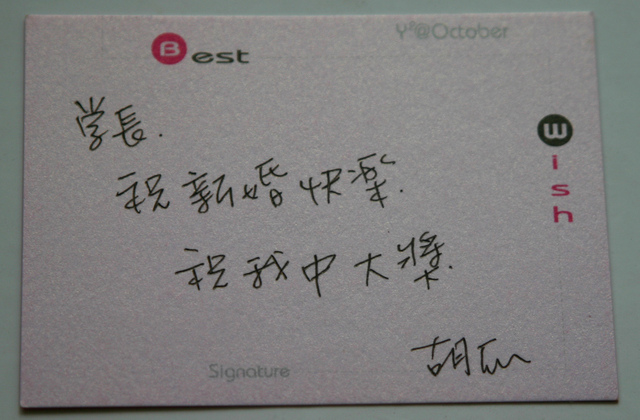 Best
Y²@October
学長.
祝新婚快樂.
Wish
祝我中大獎.
Signature
胡瓜